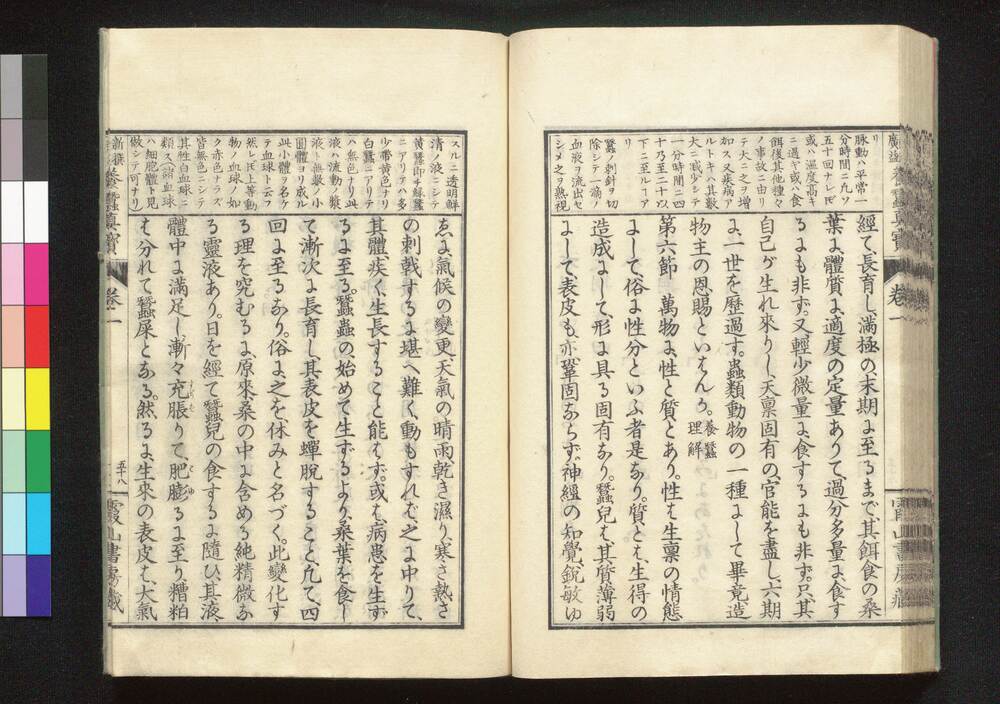 リ
脉動ハ平常一
分時間ニ九ソ
五十回ナレ𪜈
或ハ温度高キ
ニ過ギ或ハ食
餌後其他種々
ノ事故ニ由リ
テ大ニ之ヲ増
加ス又疾病ア
ルトキハ其數
大ニ減少シテ
一分時間ニ四
十乃至二十以
下ニ至ルヿア
リ
蠶ノ刺針ヲ切
除シテ一滴ノ
血液ヲ流出セ
シメ之ヲ熟視
經て長育し、滿極の、末期に至るまで、其餌食の桑
葉に、體質に、適度の定量ありて、過分多量に、食す
るにも非ず。又輕少微量に、食するにも非ず。只、其
自己が生れ來りし、天稟固有の、官能を盡し、六期
に、一世を歴過す。蟲類動物の一種にして畢竟造
物主の恩賜といはんか。養蠶理解
第六節 萬物に、性と質とあり。性は生稟の情態
にして、俗に性分といふ者是なり。質とは、生得の
造成にして、形に具る固有なり。蠶兒は、其質薄弱
にして、表皮も、亦鞏固ならず。神經の知覺、鋭敏ゆ
スルニ透明鮮
清ノ液ニシテ
黄蠶即チ緑蠶
ニアリテハ多
少帶黄色ナリ
白蠶ニアリテ
ハ無色ナリ此
液ハ流動ノ漿
液ト無數ノ小
圓體ヨリ成ル
此小體ヲ名ケ
テ血球ト云フ
然レ𪜈上等動
物ノ血球ノ如
ク赤色ナラズ
皆無色ニシテ
其性白血球ニ
類ス(諸血球
ハ細胞體ト見
做シテ可ナリ)
ゑに、氣候の變更、天氣の晴雨乾き濕り、寒さ熱さ
の刺戟するに堪へ難く動もすれば之に中りて、
其體疾く、生長すること能はず。或は、病患を生ず
るに至る。蠶蟲の、始めて生ずるより、桑葉を、食し
て漸次に長育し、其表皮を蟬脱すること、凡て、四
回に至るなり。俗に之を休みと名づく。此變化す
る理を究むるに、原來、桑の中に含める純精微な
る靈液あり。日を經て蠶兒の食するに隨ひ、其液
體中に滿足し、漸々充脹りて、肥膨るに至り糟粕
は分れて蠶屎となる。然るに、生來の表皮は、大氣
新撰
養蠶眞寳
卷一
五十八
霞山書房藏